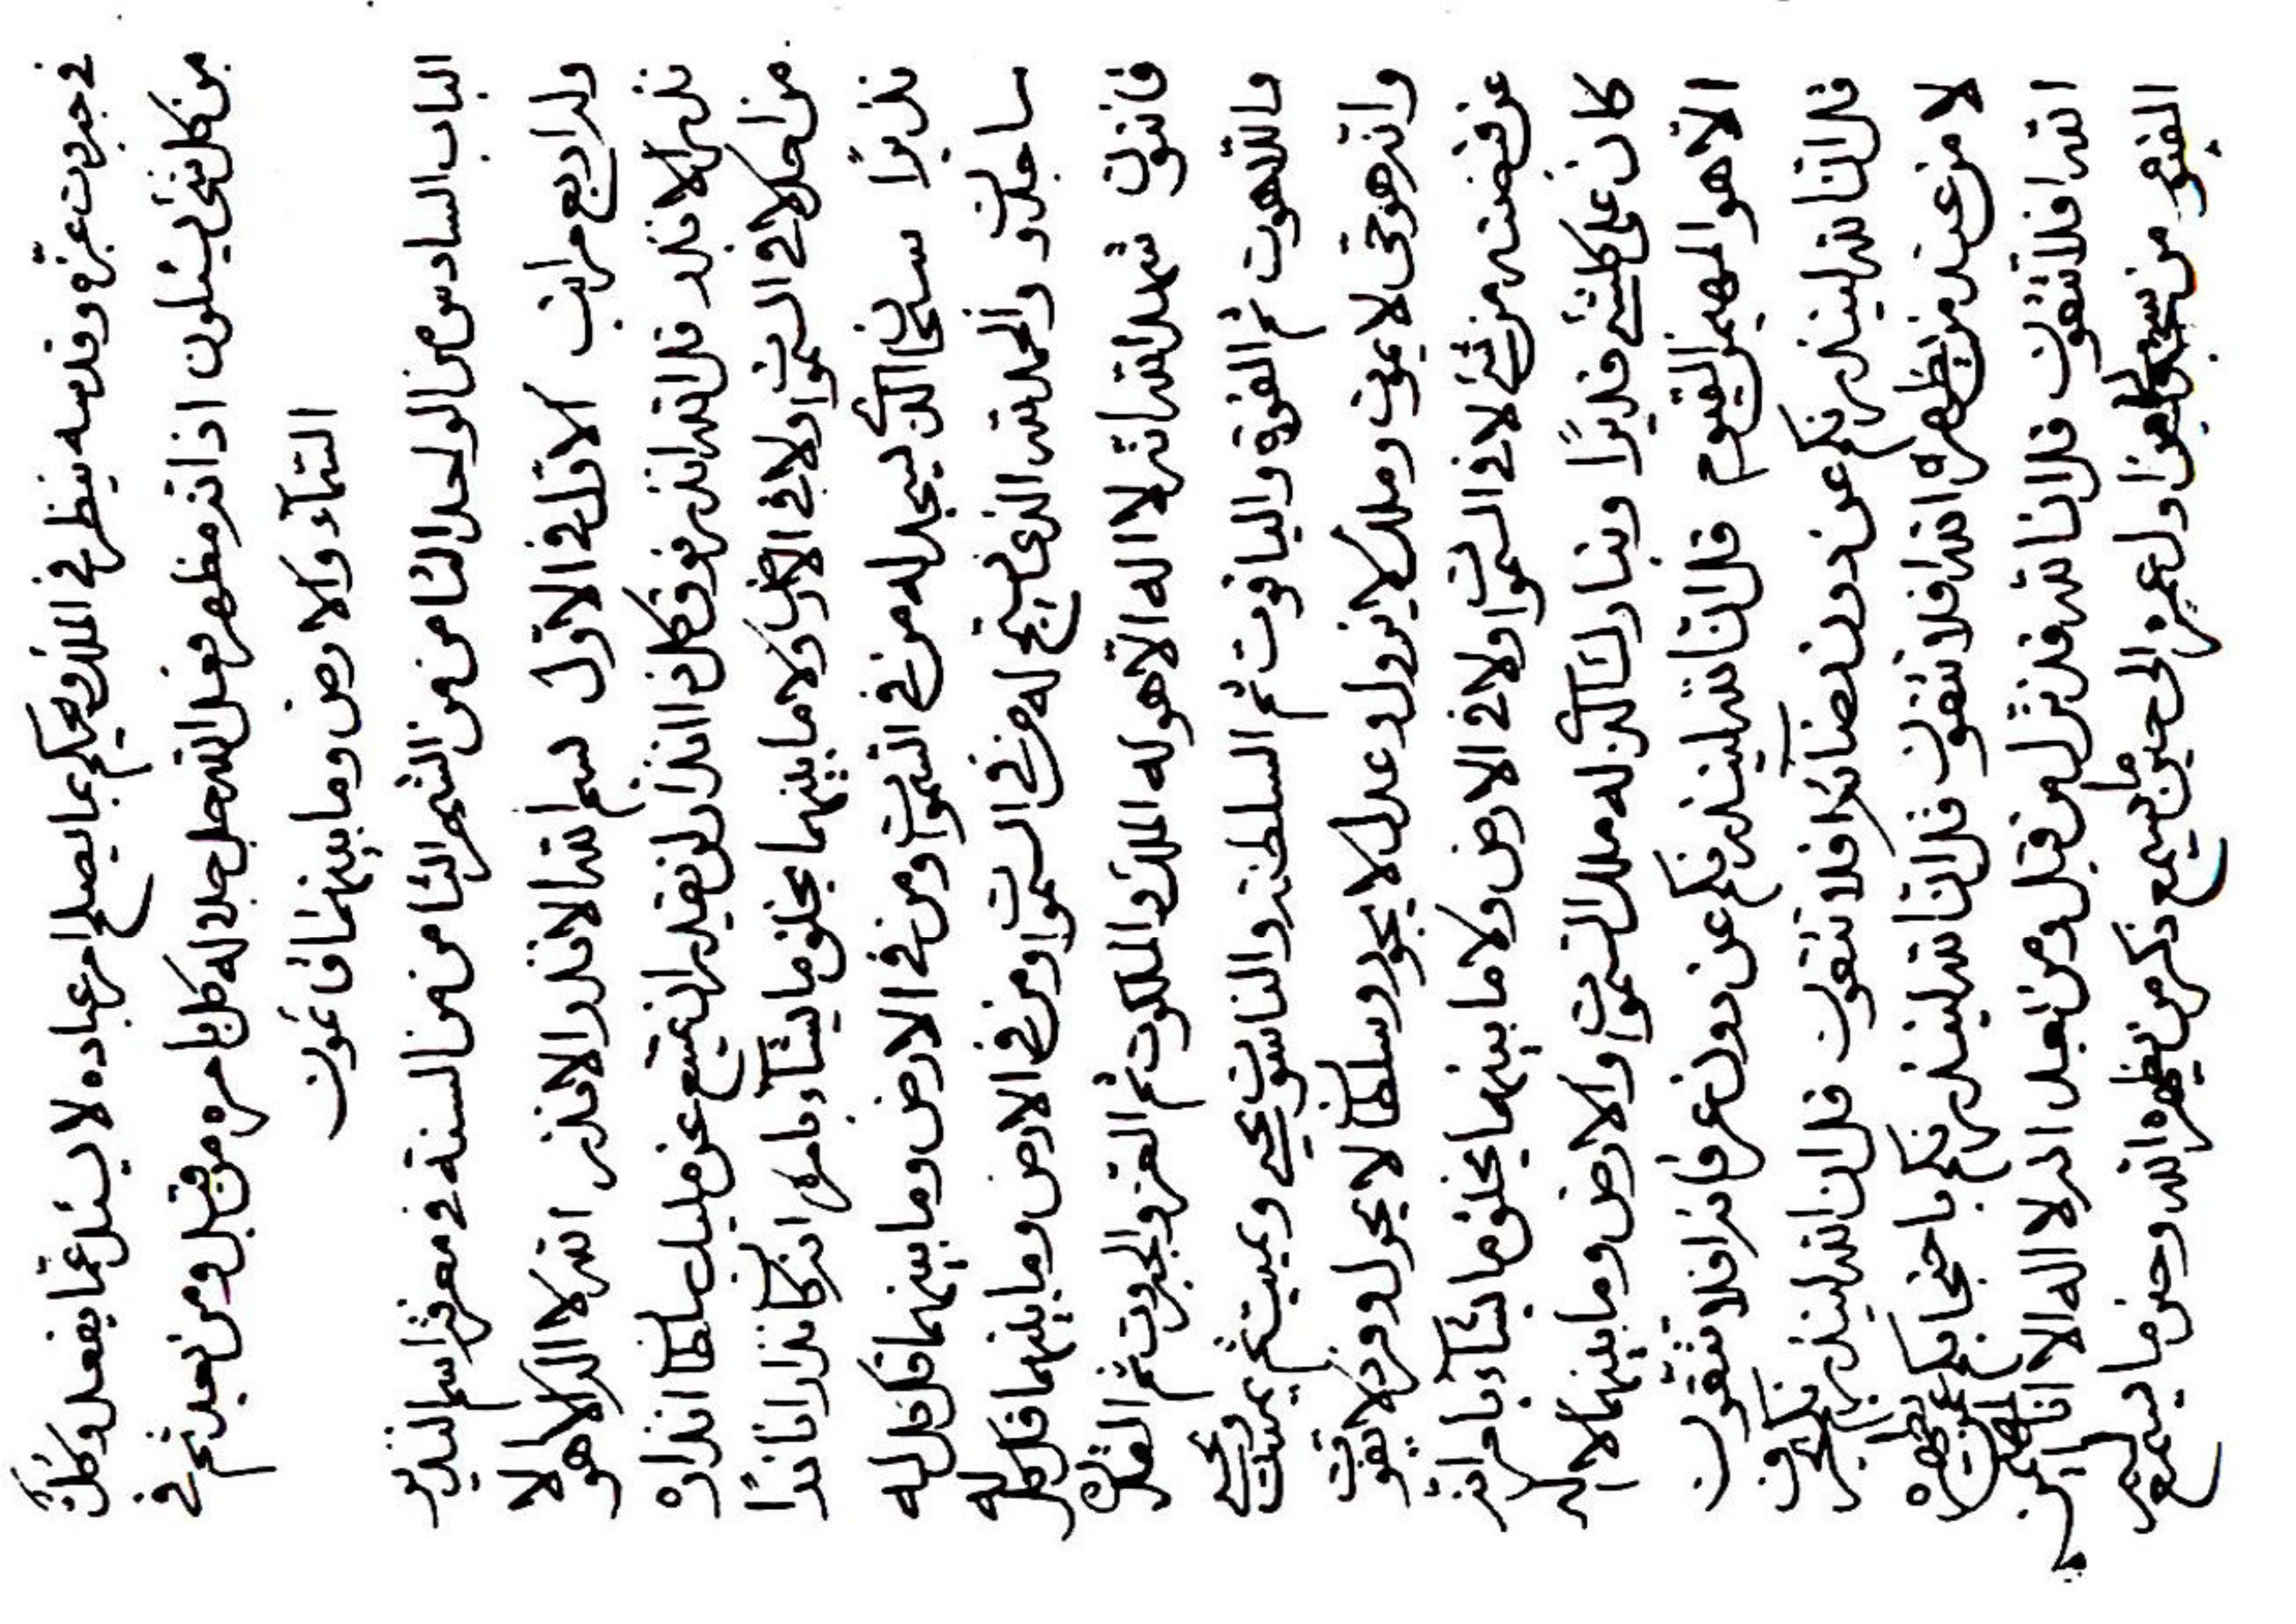 في جبروت عزه و قدسه ينظر في الملك و يحكم بما يصلح امر عباده لا يسئل عما يفعل و كل
من كل شئ يسئلون اذ انه مظهر فعل الله جل جلاله كل بامره من قبل و من بعد ثم في
السمآء و الارض و ما بينهما
الباب السادس من الواحد الثامن من الشهر الثامن من السنة في معرفة اسم النذير
و له اربع مراتب الاول في الاول بسم الله الانذر الانذر انه لا اله الا هو
نذر الانذر قل الله انذر فوق كل ذا انذار لن يقدر ان يمتنع عن مليك سلطان انذاره
من احد لا في السموات و لا في الارض و لا ما بينهما يخلق ما يشآء بامره انه كان نذارا ناذرا
نذيرا سبحان الذي يسجد له من في السموات و من في الارض و ما بينهما قل كل له
ساجدون و الحمد لله الذي يسبح له من في السموات و من في الارض و ما بينهما قل كل له
قانتون شهد الله انه لا اله الا هو له الملك و الملكوت ثم العز و الجبروت ثم القدرة
و اللاهوت ثم القوة و الياقوت ثم السلطنة و الناسوت يحيي و يميت ثم يميت و يحيي
و انه هو حي لا يموت و ملك لا يزول و عدل لا يجور و سلطان لا يحول و فرد لا يفوت
عن قبضته من شئ لا في السموات و لا في الارض و لا ما بينهما يخلق ما يشآء بامره انه
كان على كلشئ قديرا و تبارك الذي له ملك السموات و الارض و ما بينهما لا اله
الا هو المهيمن القيوم قل ان الله لينذرنكم عن دون عرفانه افلا تتقون
قل ان الله لينذرنكم عن دون رضآئه افلا تتقون قل ان الله لينذرنكم
لا من عند من يظهره الله افلا تتقون قل ان الله لينذرنكم باحتجابكم عن يظهره
الله افلا تتقون قل ان الله قد نزل من قبل و من بعد انه لا اله الا انا
من يسمع ذكر من يظهره الله و حين ما يسمع